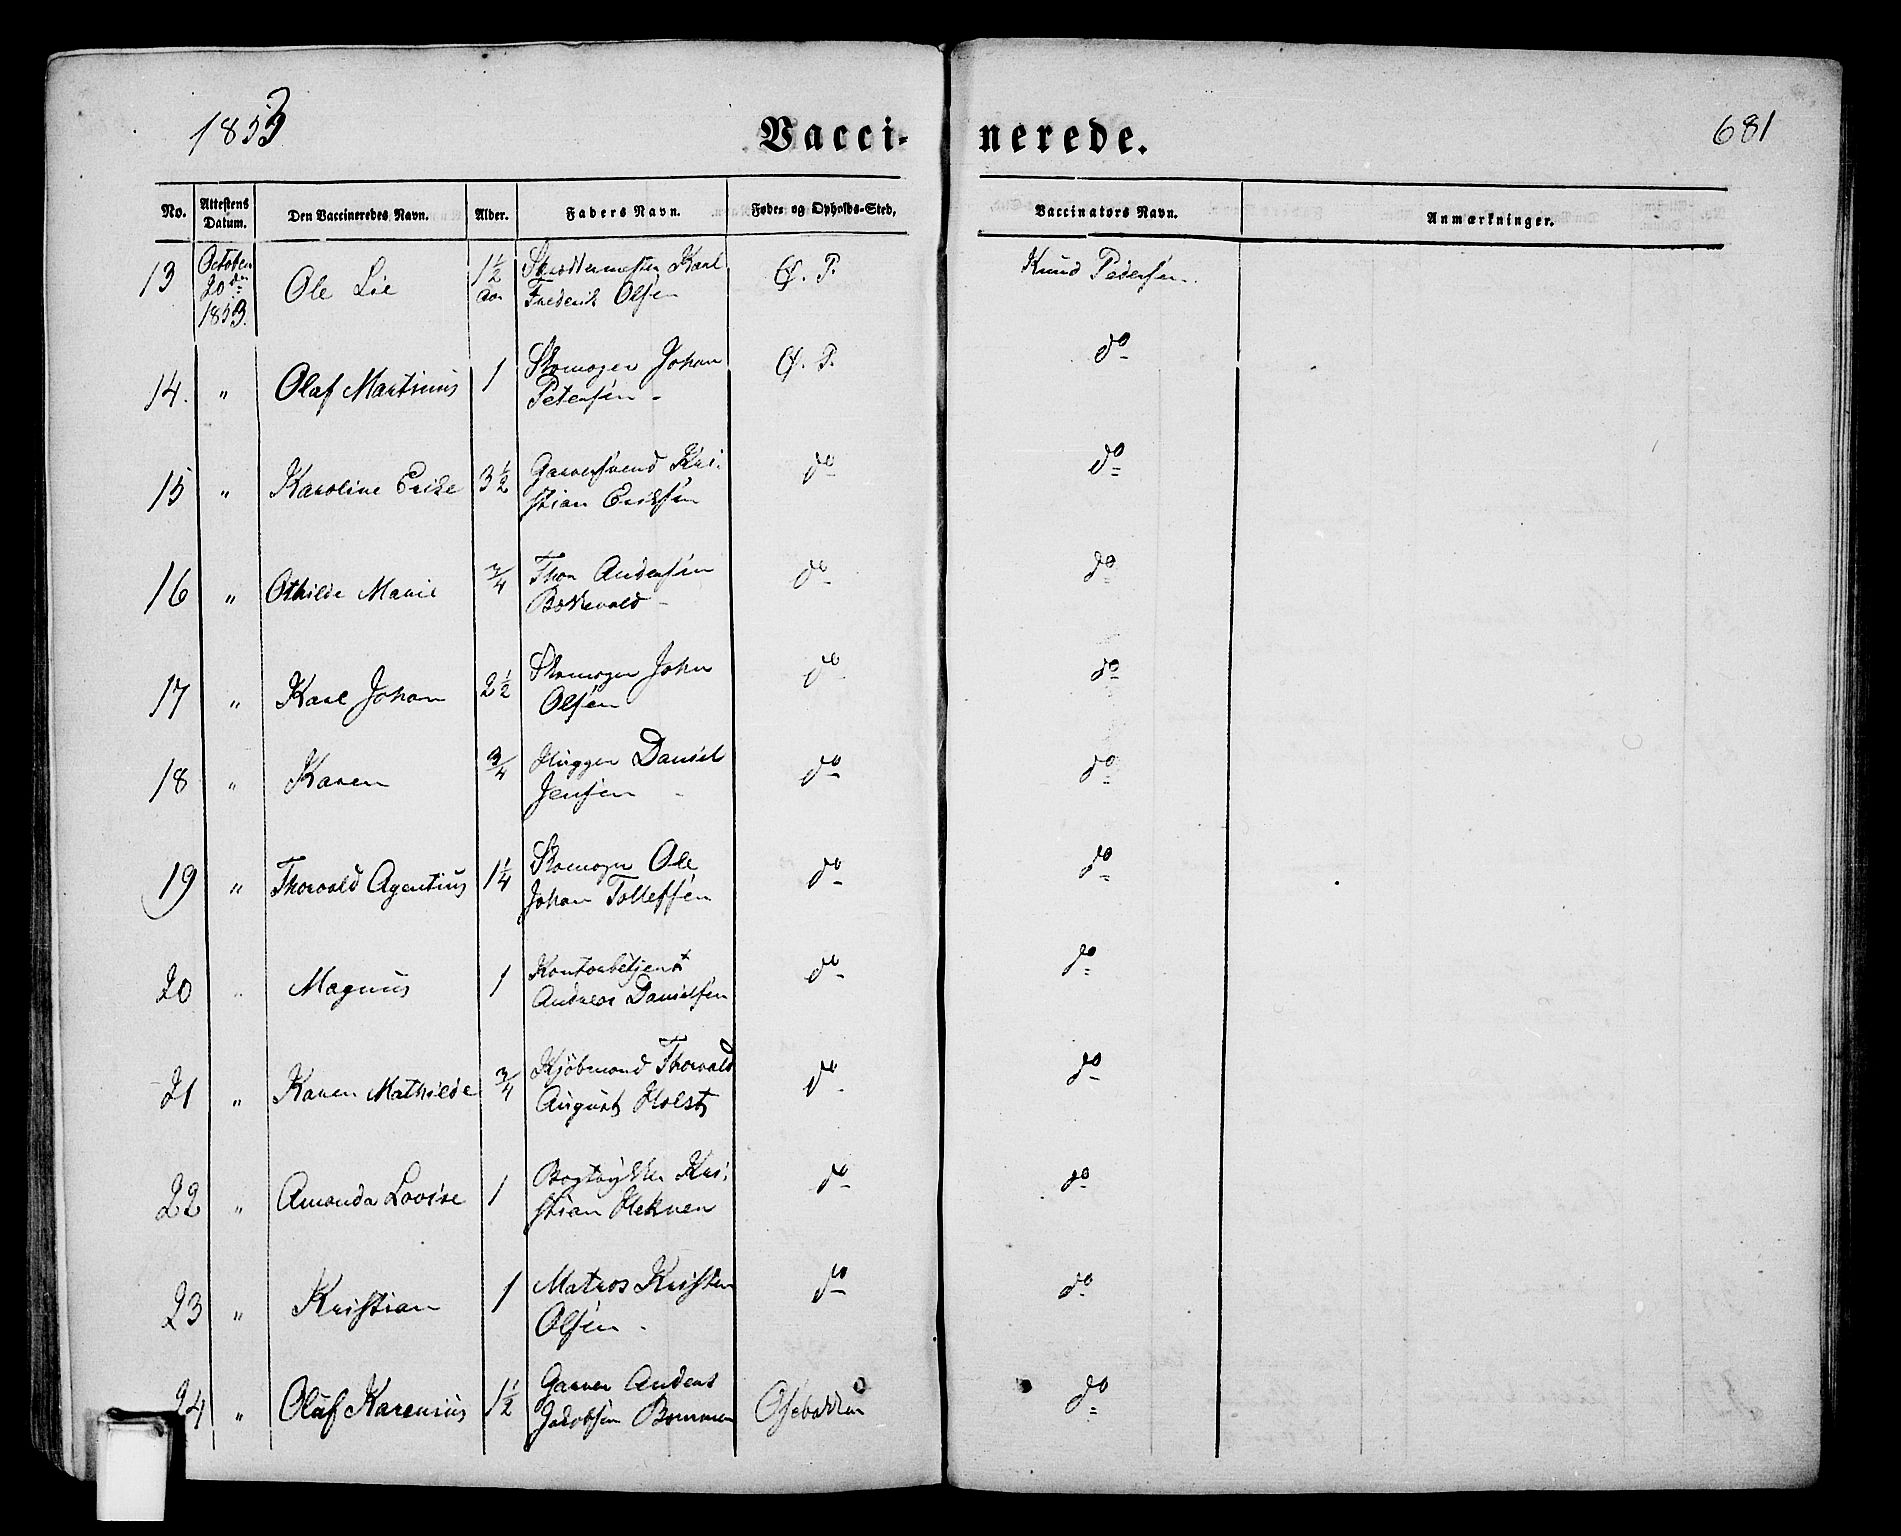 1853
Vacci-nerede.
681
No. Attestens Datum. Den Vaccineredes Navn. Alder. Faders Navn. Føde- og Opholds-Sted, Vaccinators Navn. Anmærkninger.
13 October 20de 1853. Ole Lie 1½ Aar Karl Frederik Olsen Ø. P. Knud Pedersen.
14. " Olaf Martinius 1 Skomager Johan Petersen - Ø. P. do
15 " Karoline Erike 3½ Garversvend Kristian Eriksen do do
16 " Othilde Marie ¾ Thor Andersen - do do
17 " Karl Johan 2½ Skomager John Olsen do do
18 " Karen ¾ Hugger Daniel Jensen - do do
19 " Thorvald Agentius 1¼ Skomager Ole Johan Tollefsen do do
20 " Magnus 1 Kontorbetjent Andreas Danielsen do do
21 " Karen Mathilde ¾ Kjöbmand Thorvald August Holst do do
22 " Amanda Lovise 1 Bogtrykker Kristian do do
23 " Kristian 1 Matros Kristen Olsen - do do
24 " Oluf Karenius 1½ Garver Anders Jakobsen Bommen Osebakken do